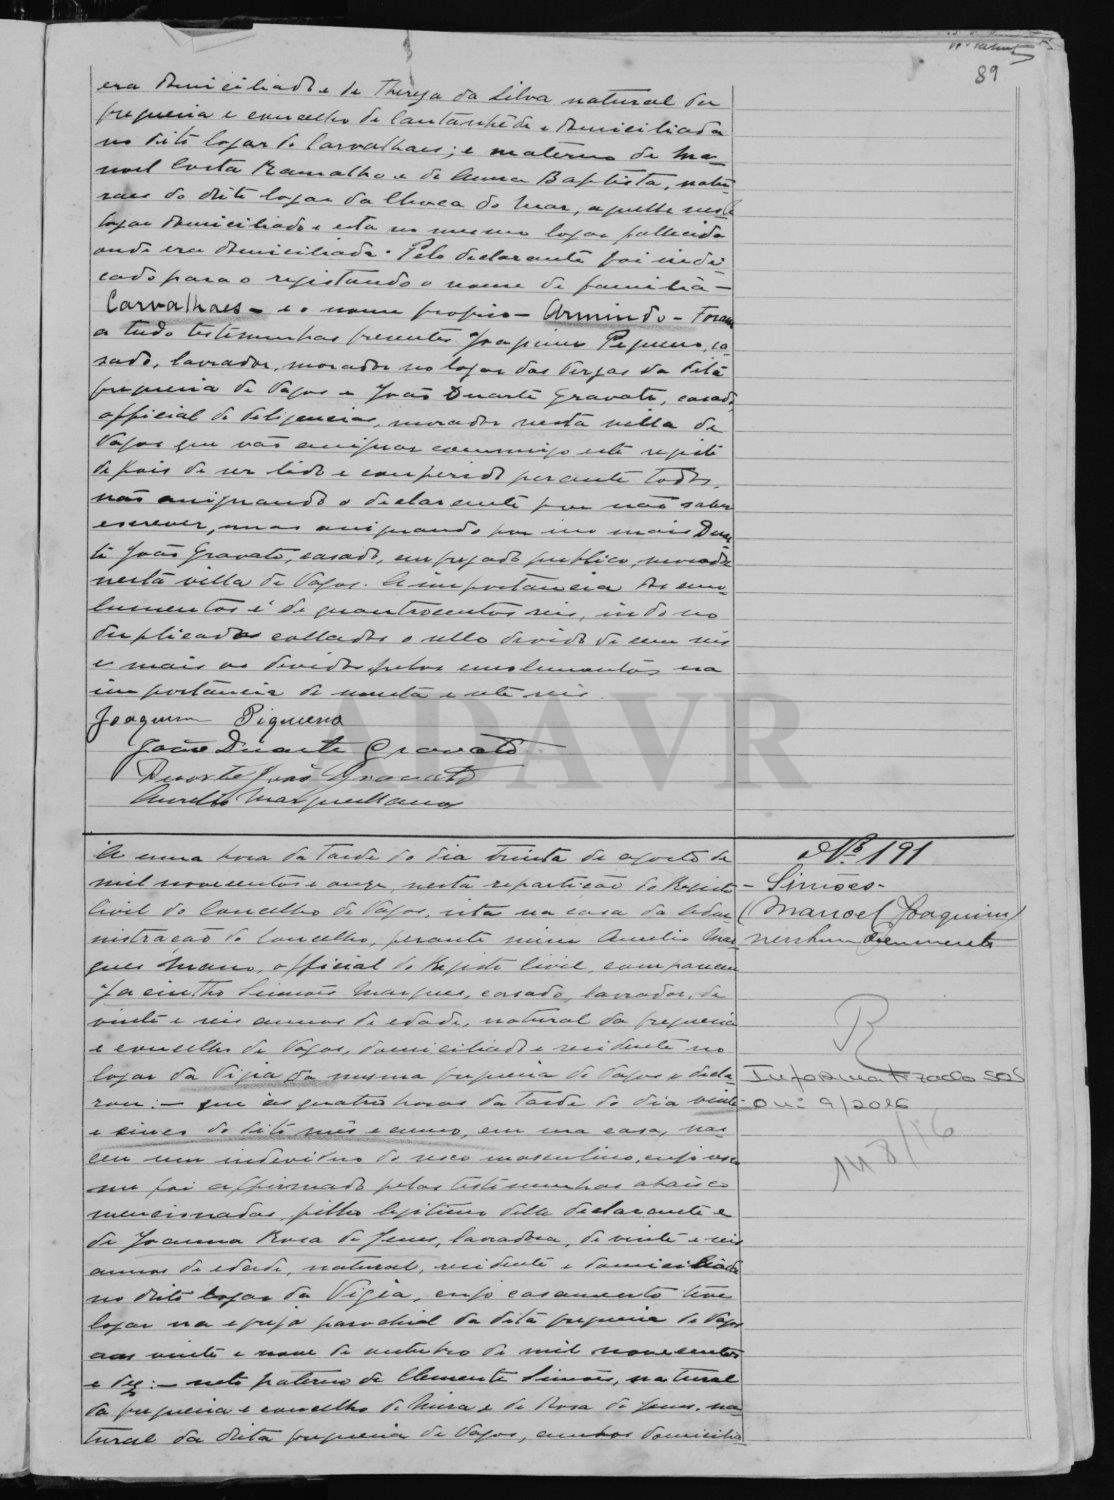 89
era domiciliado e de Thereza da Silva natural da
freguezia e concelho de Cantanhêde e domiciliada
no dito logar de Carvalhaes; e materno de Ma-
noel Costa Ramalho e de Anna Baptista, natu-
raes do dito logar da Choca do Mar, aquelle neste
logar domiciliado e esta no mesmo logar fallecida
onde era domiciliada. Pelo declarante foi indi-
cado para o registando o nome de familia -
Carvalhaes - e o nome proprio - Armindo - Foram
a tudo testemunhas presentes Joaquim Pequeno, ca-
sado, lavrador, morador no logar das Vergas da dita
freguezia de Vagos e João Duarte Gravato, casado,
official de deligencias, morador nesta villa de
Vagos que vão assignar commigo este registo
depois de ser lido e conferido perante todos,
não assignando o declarante por não saber
escrever, mas assignando por seu mais Duar-
te João Gravato, casado, empregado publico, morador
nesta villa de Vagos. A importancia dos emo-
lumentos é de quantrocentos reis, indo no
duplicado collados o sello devido de cem reis
e mais os devidos pelos emolumentos na
importancia de noventa e sete reis.
Joaquim Piqueno
João Duarte Gravato
Duarte João Gravato
Aurelio Marques Mano
Nº 191
- Simões -
(Manoel Joaquim)
nenhum documento
R
Informatizado SOS
Ou: 9/2016
A uma hora da tarde do dia trinta de agosto de
mil novecentos e onze, nesta repartição do Registo
Civil do Concelho de Vagos, sita na casa da Admi-
nistração do Concelho, perante mim Aurelio Mar-
ques Mano, official do Registo Civil, compareceu
Jacintho Simões Marques, casado, lavrador, de
vinte e seis annos de edade, natural da freguezia
e concelho de Vagos, domiciliado e residente no
logar da Vigia da mesma freguezia de Vagos e decla-
rou: - que ás quatro horas da tarde do dia vinte
e cinco do dito mês e anno, em sua casa, nas-
ceu um individuo do sexo masculino, cujo sexo
me foi affirmado pelas testemunhas abaixo
mencionadas, filho legitimo delle declarante e
de Joanna Rosa de Jesus, lavradora, de vinte e seis
annos de edade, natural, residente e domiciliada
no dito logar da Vigia, cujo casamento teve
logar na egreja parochial da dita freguezia de Vagos
aos vinte e nove de outubro de mil novecentos
e dez: - neto paterno de Clemente Simões, natural
da freguezia e concelho de Mira e de Rosa de Jesus, na-
tural da dita freguezia de Vagos, ambos domicilia-
ADAVR